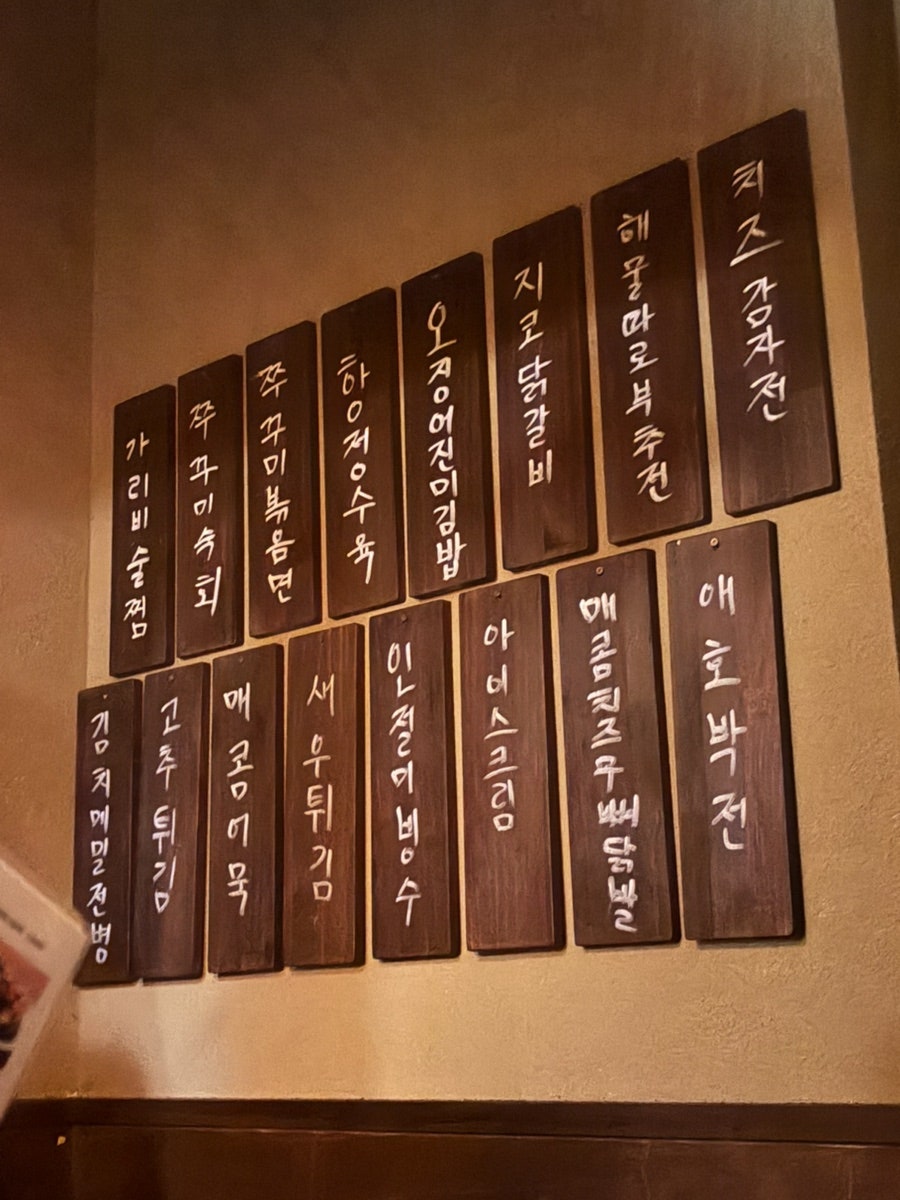 가리비술찜
쭈꾸미숙회
쭈꾸미볶음면
항정수육
오징어진미김밥
지코닭갈비
해물파로부추전
치즈감자전
김치메밀전병
고추튀김
매콤어묵
새우튀김
인절미빙수
아이스크림
매콤치즈무뼈닭발
애호박전